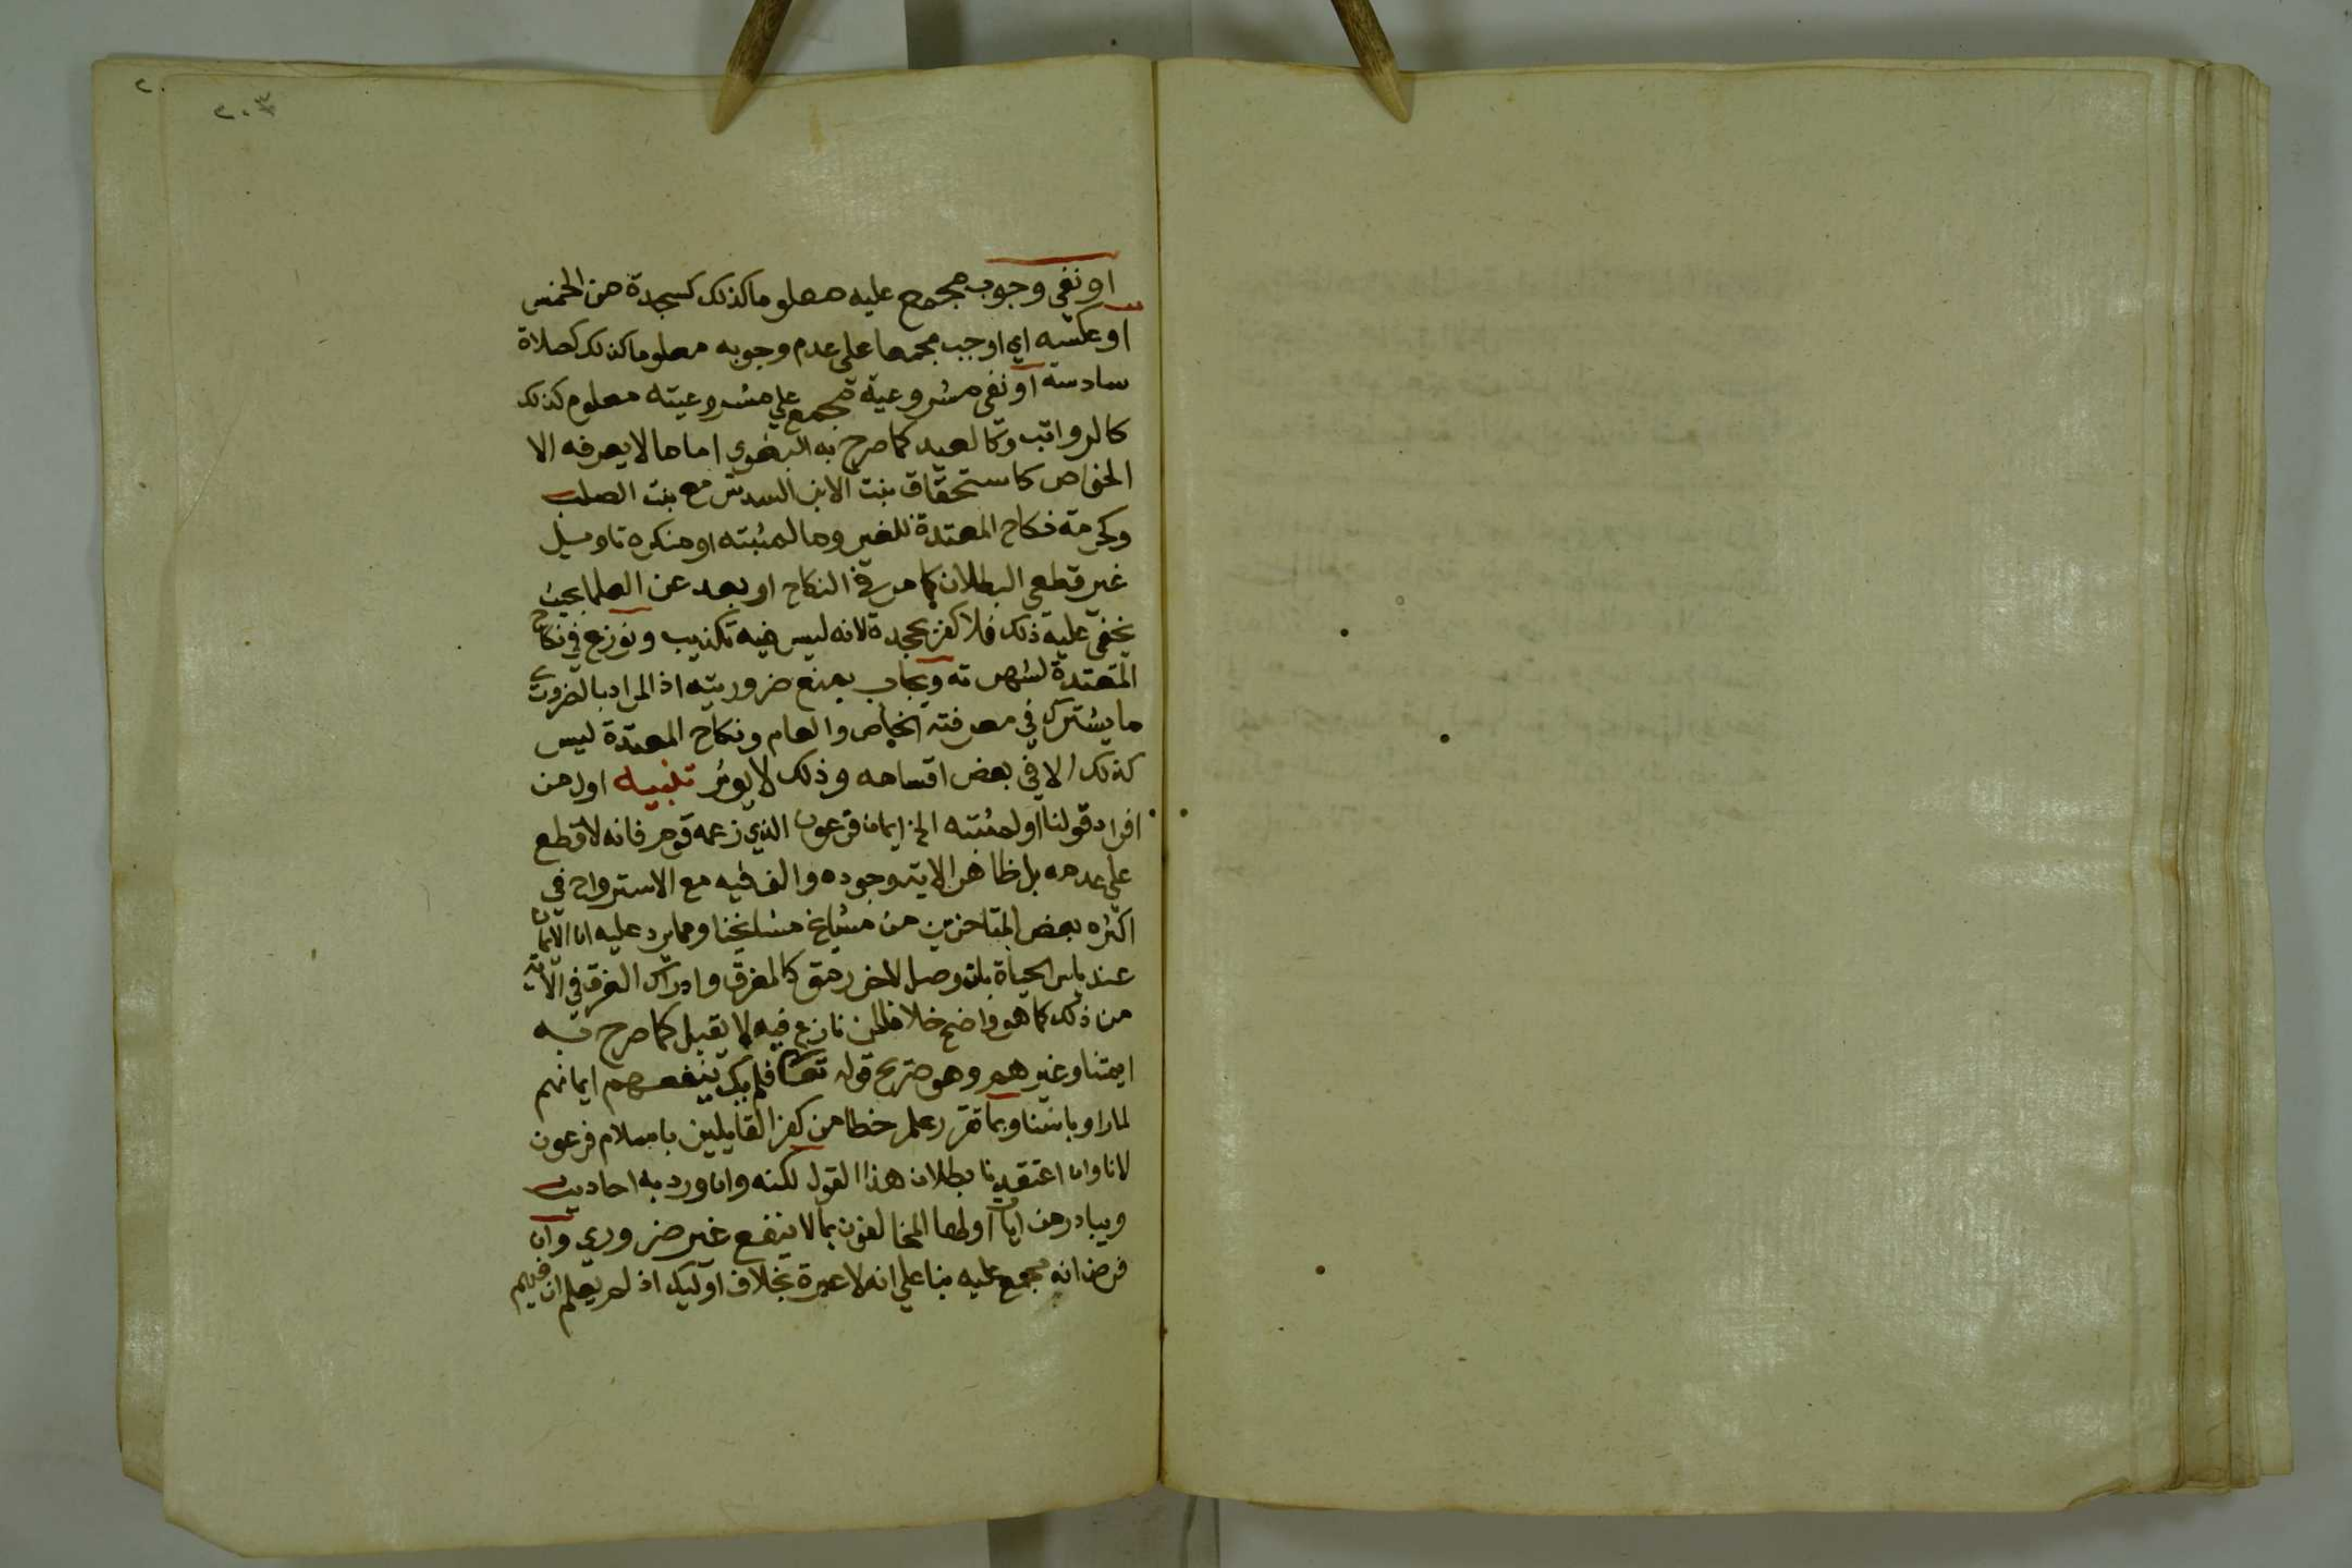 ٢٠٣
٢٠
او نفى وجوب مجمع عليه معلوما كذلك كسجدة من الخمس
او عكسه اي اوجب مجمعا على عدم وجوبه معلوما كذلك كصلاة
سادسة او نفى مشروعية مجمع علي مشروعيته معلوم كذلك
كالرواتب وكالعيد كما صرح به البغوي اما ما لا يعرفه الا
الخواص كاستحقاق بنت الابن السدس مع بنت الصلب
وكحرمة نكاح المعتدة للغير وما لمثبته او منكره تاويل
غير قطعي البطلان كما مر في النكاح او بعد عن العلما بحيث
يخفى عليه ذلك فلا كفر بجحده لانه ليس فيه تكذيب ونوزع في نكاح
المعتدة لشهرته ويجاب بمنع ضروريته اذ المراد بالضروري
ما يشترك في معرفته الخاص والعام ونكاح المعتدة ليس
كذلك الا في بعض اقسامه وذلك لا يوثر تنبيه اول من
افراد قولنا او لمثبته الخ ايمان فرعون الذي زعمه قوم فانه لا قطع
على عدمه بل ظاهر الاية وجوده والف فيه مع الاسترواح في
اكثره بعض المتاخرين من مشايخ مشايخنا ومما يرد عليه ان الايمان
عند ياس الحياة بان وصل لاخر رمق كالغرق وادراك الغرق في الاية
من ذلك كما هو واضح خلافا لمن نازع فيه لا يقبل كما صرح به
ايمتنا وغيرهم وهو صريح قوله تعالى فلم يك ينفعهم ايمانهم
لما راوا باسنا وبما تقرر علم خطا من كفر القايلين باسلام فرعون
لانا وان اعتقدنا بطلان هذا القول لكنه وان ورد به احاديث
ويبادر من ايات اولها المخالفون بما لا ينفع غير ضروري وان
فرض انه مجمع عليه بنا علي انه لا عبرة بخلاف اوليك اذ لم يعلم ان فيهم